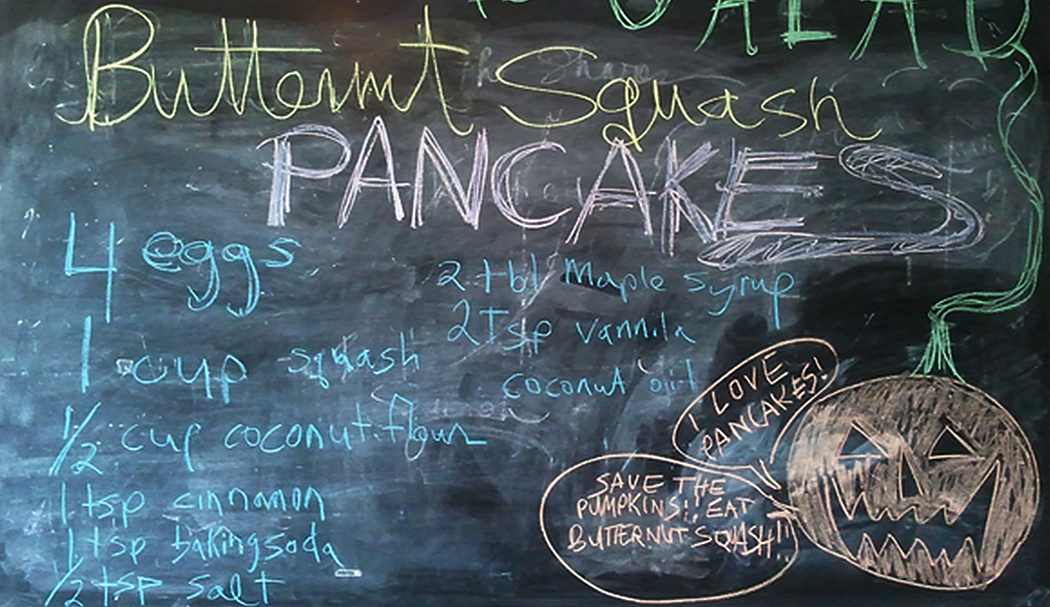 SALAD
Butternut Squash
PANCAKES
4 eggs
1 cup squash
1/2 cup coconut flour
1 tsp cinnamon
1 tsp baking soda
1/2 tsp salt
2 tbl Maple syrup
2 Tsp vannila
coconut oil
I LOVE
PANCAKES!
SAVE THE
PUMPKINS!! EAT
BUTTERNUT SQUASH!!